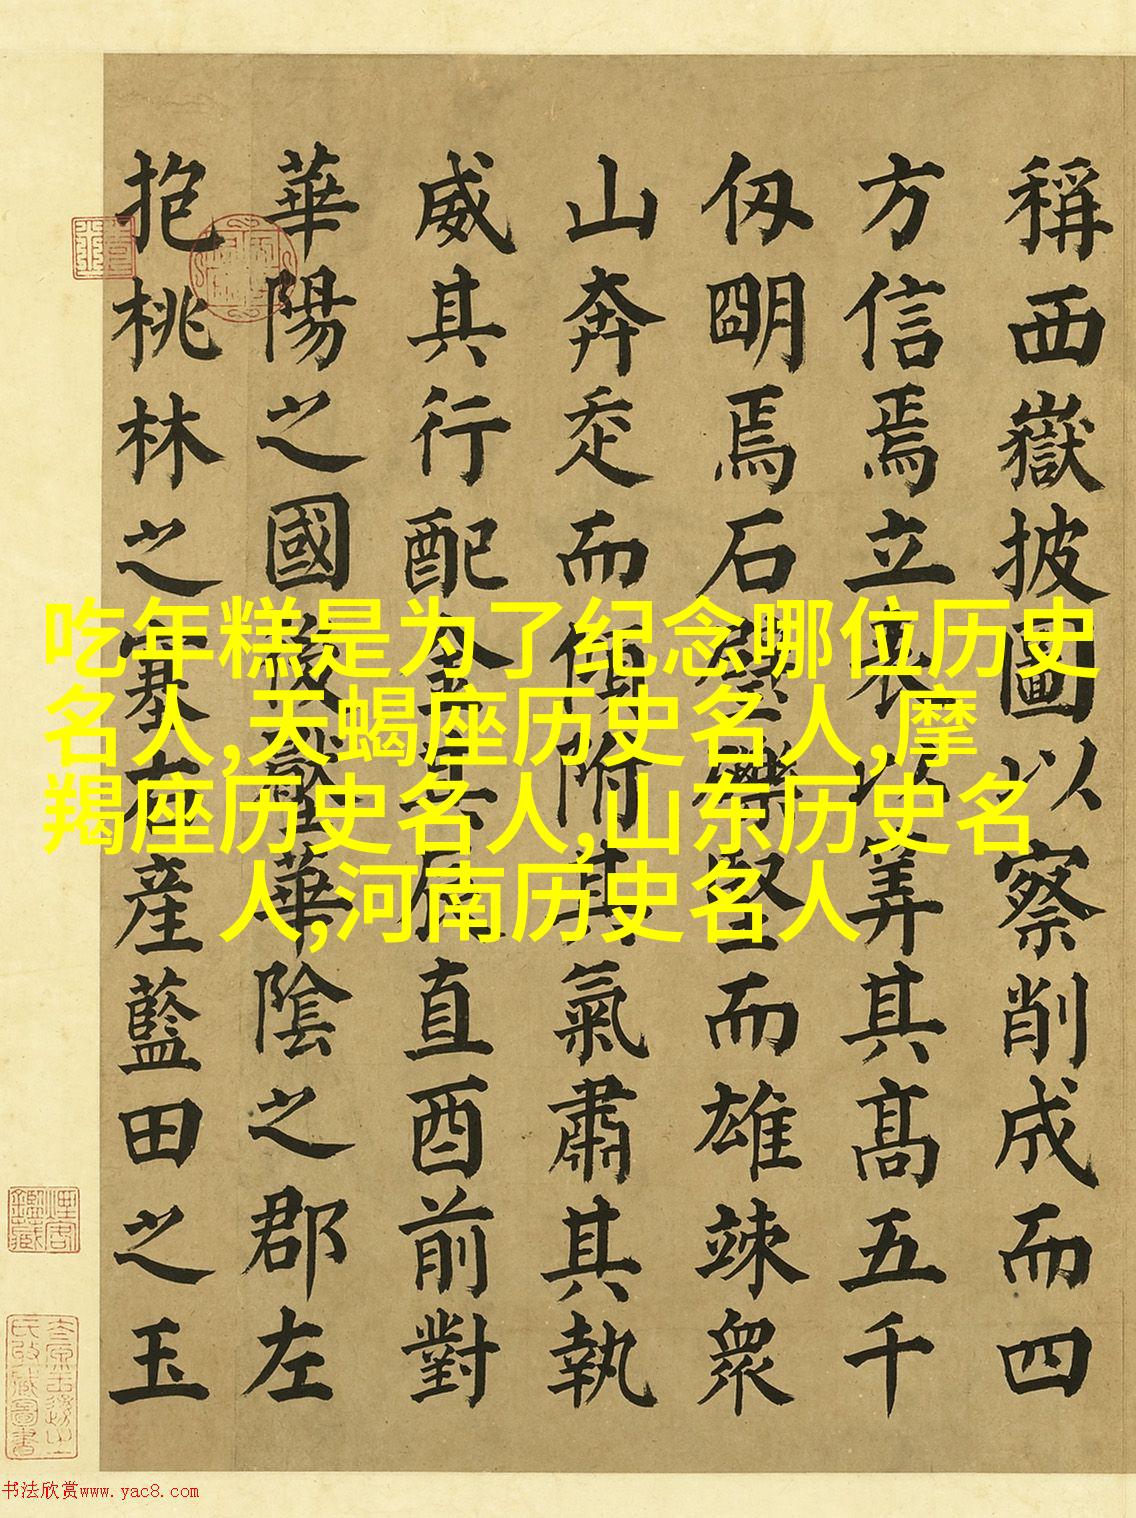 吃年糕是为了纪念哪位历史
名人,天蝎座历史名人,摩
羯座历史名人,山东历史名
人,河南历史名人
稱西嶽披圖以察削成而四
方信焉立表以筭其髙五千
仭朙焉石而雄竦衆
山奔走而附其氣肅其執
威其行配金其辰直酉前對
華陽之國後華陰之郡左
抱桃林之塞右產藍田之玉
书法欣赏www.yac8.com